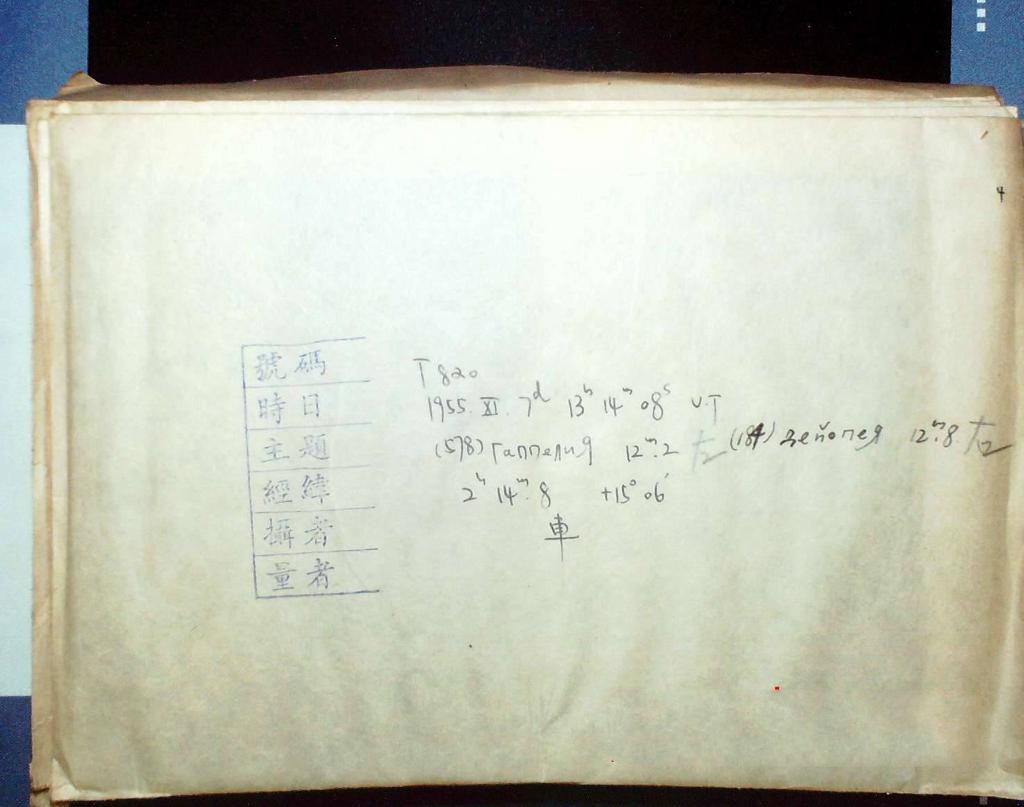 4
號碼 T820
時日 1955. XI. 7ᵈ 13ʰ 14ᵐ 08ˢ U.T
主題 (578) Гаппелия 12ᵐ.2 左 (184) Дейопея 12ᵐ.8. 右
經緯 2ʰ 14ᵐ.8 +15° 06′
攝者 車
量者